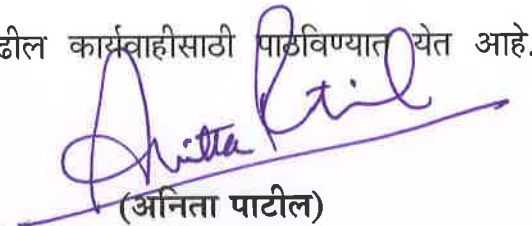 ढील कार्यवाहीसाठी पाठविण्यात येत आहे.
Anitta Patil
(अनिता पाटील)